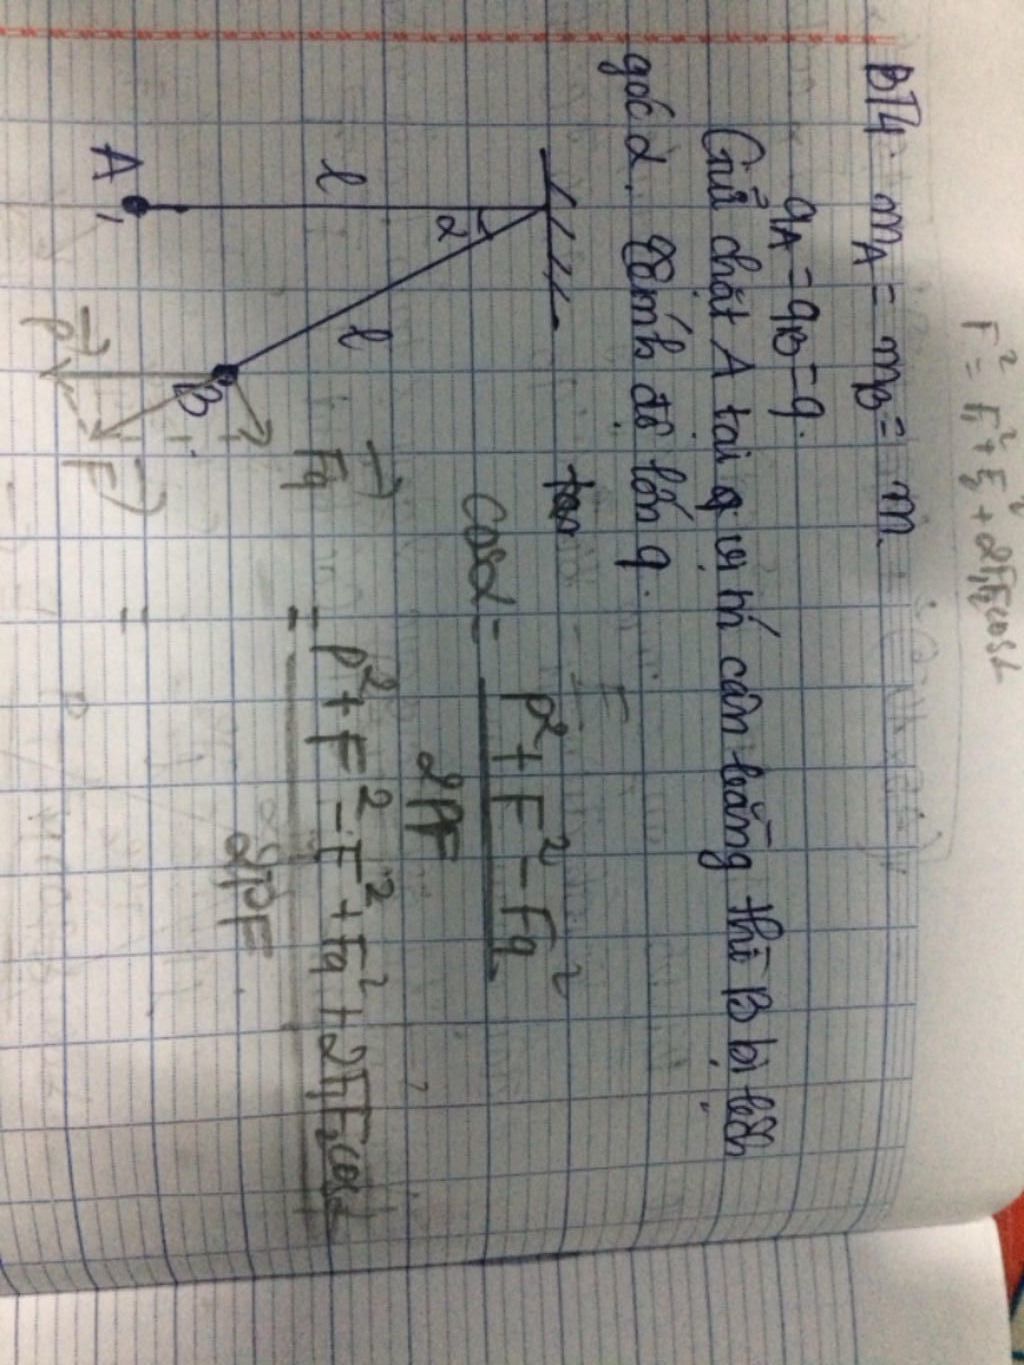 F² = F₁² + F₂² + 2F₁F₂cosα
BT4: m_A = m_B = m.
q_A = q_B = q.
Giữ chặt A tại vị trí cân bằng thì B bị lệch
góc α. Tính độ lớn q.
l
α
l
A
B
F⃗q
P⃗
F⃗
tan
cosα = (P² + F² - Fq²) / 2PF
= (P² + F² - F² + Fq² + 2F₁F₂cosα) / 2PF
=